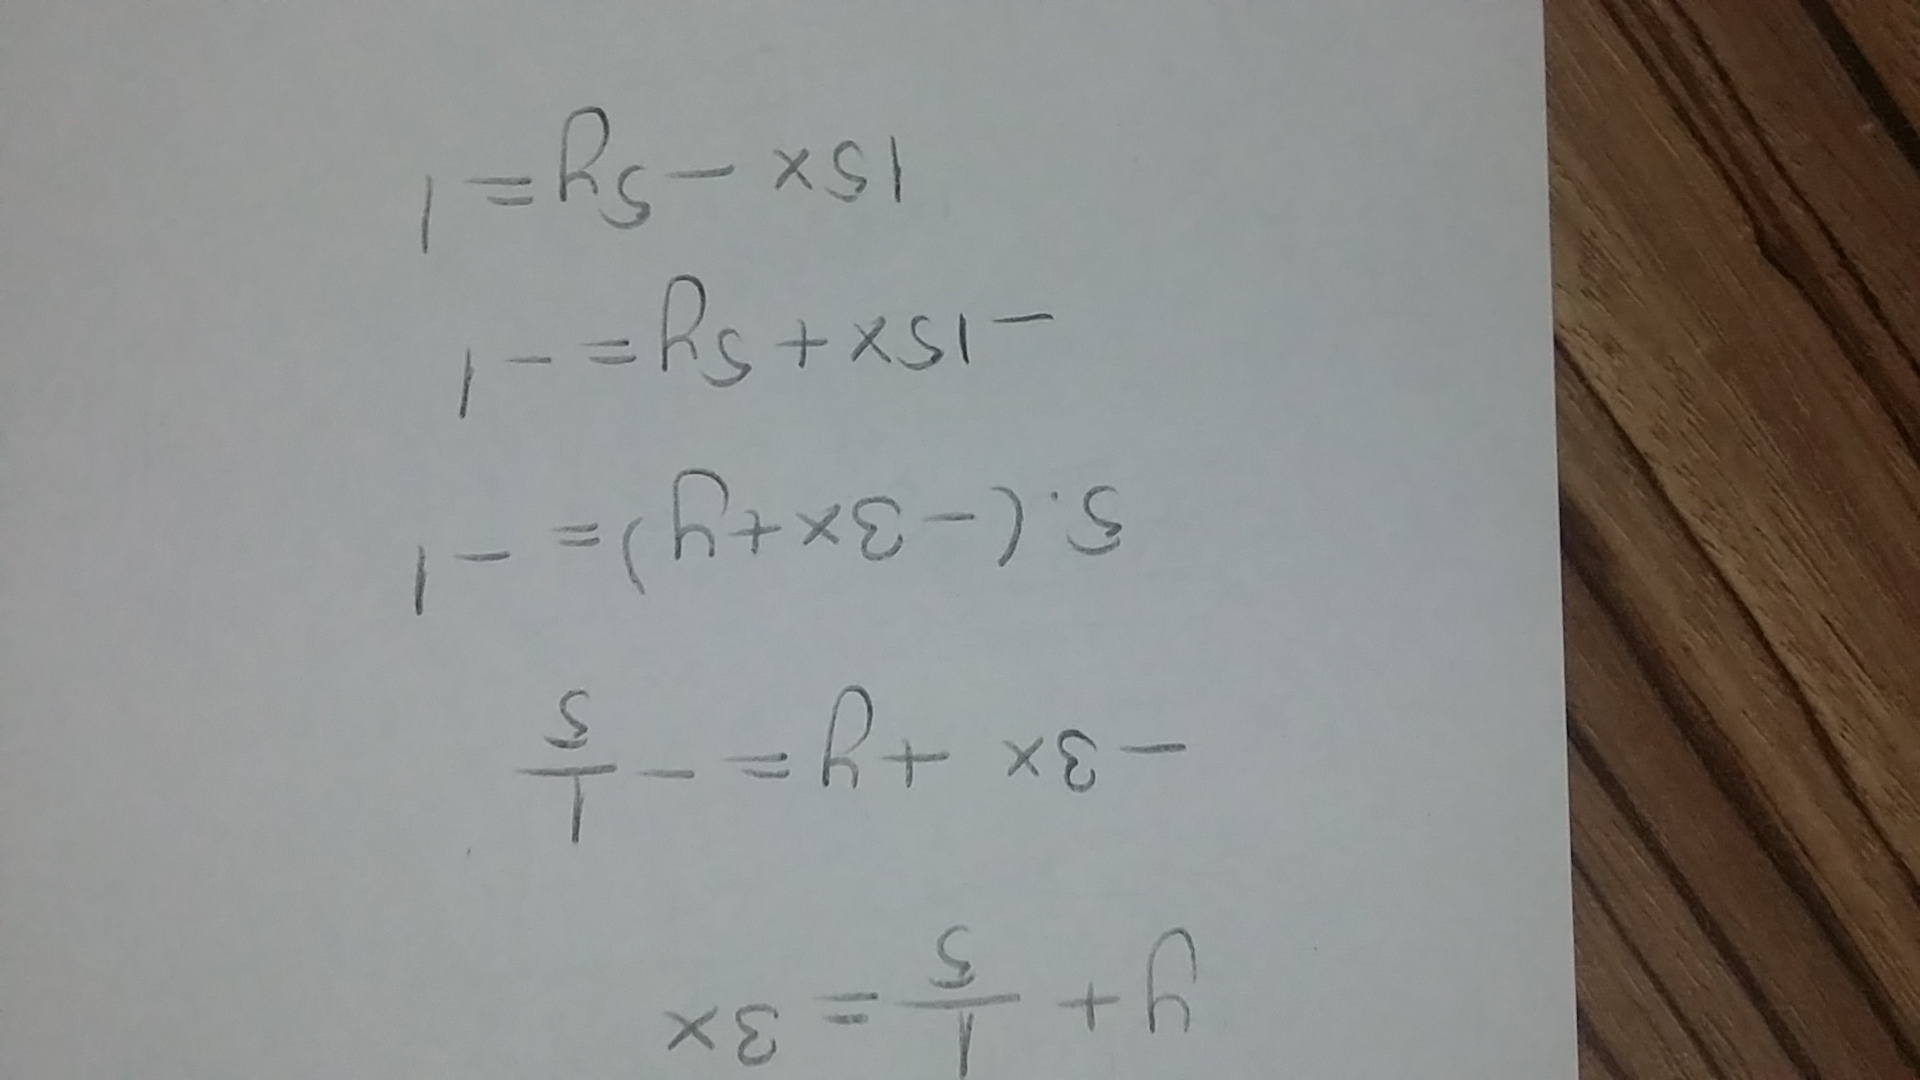 y + 1/5 = 3x
-3x + y = -1/5
5.(-3x+y) = -1
-15x + 5y = -1
15x - 5y = 1